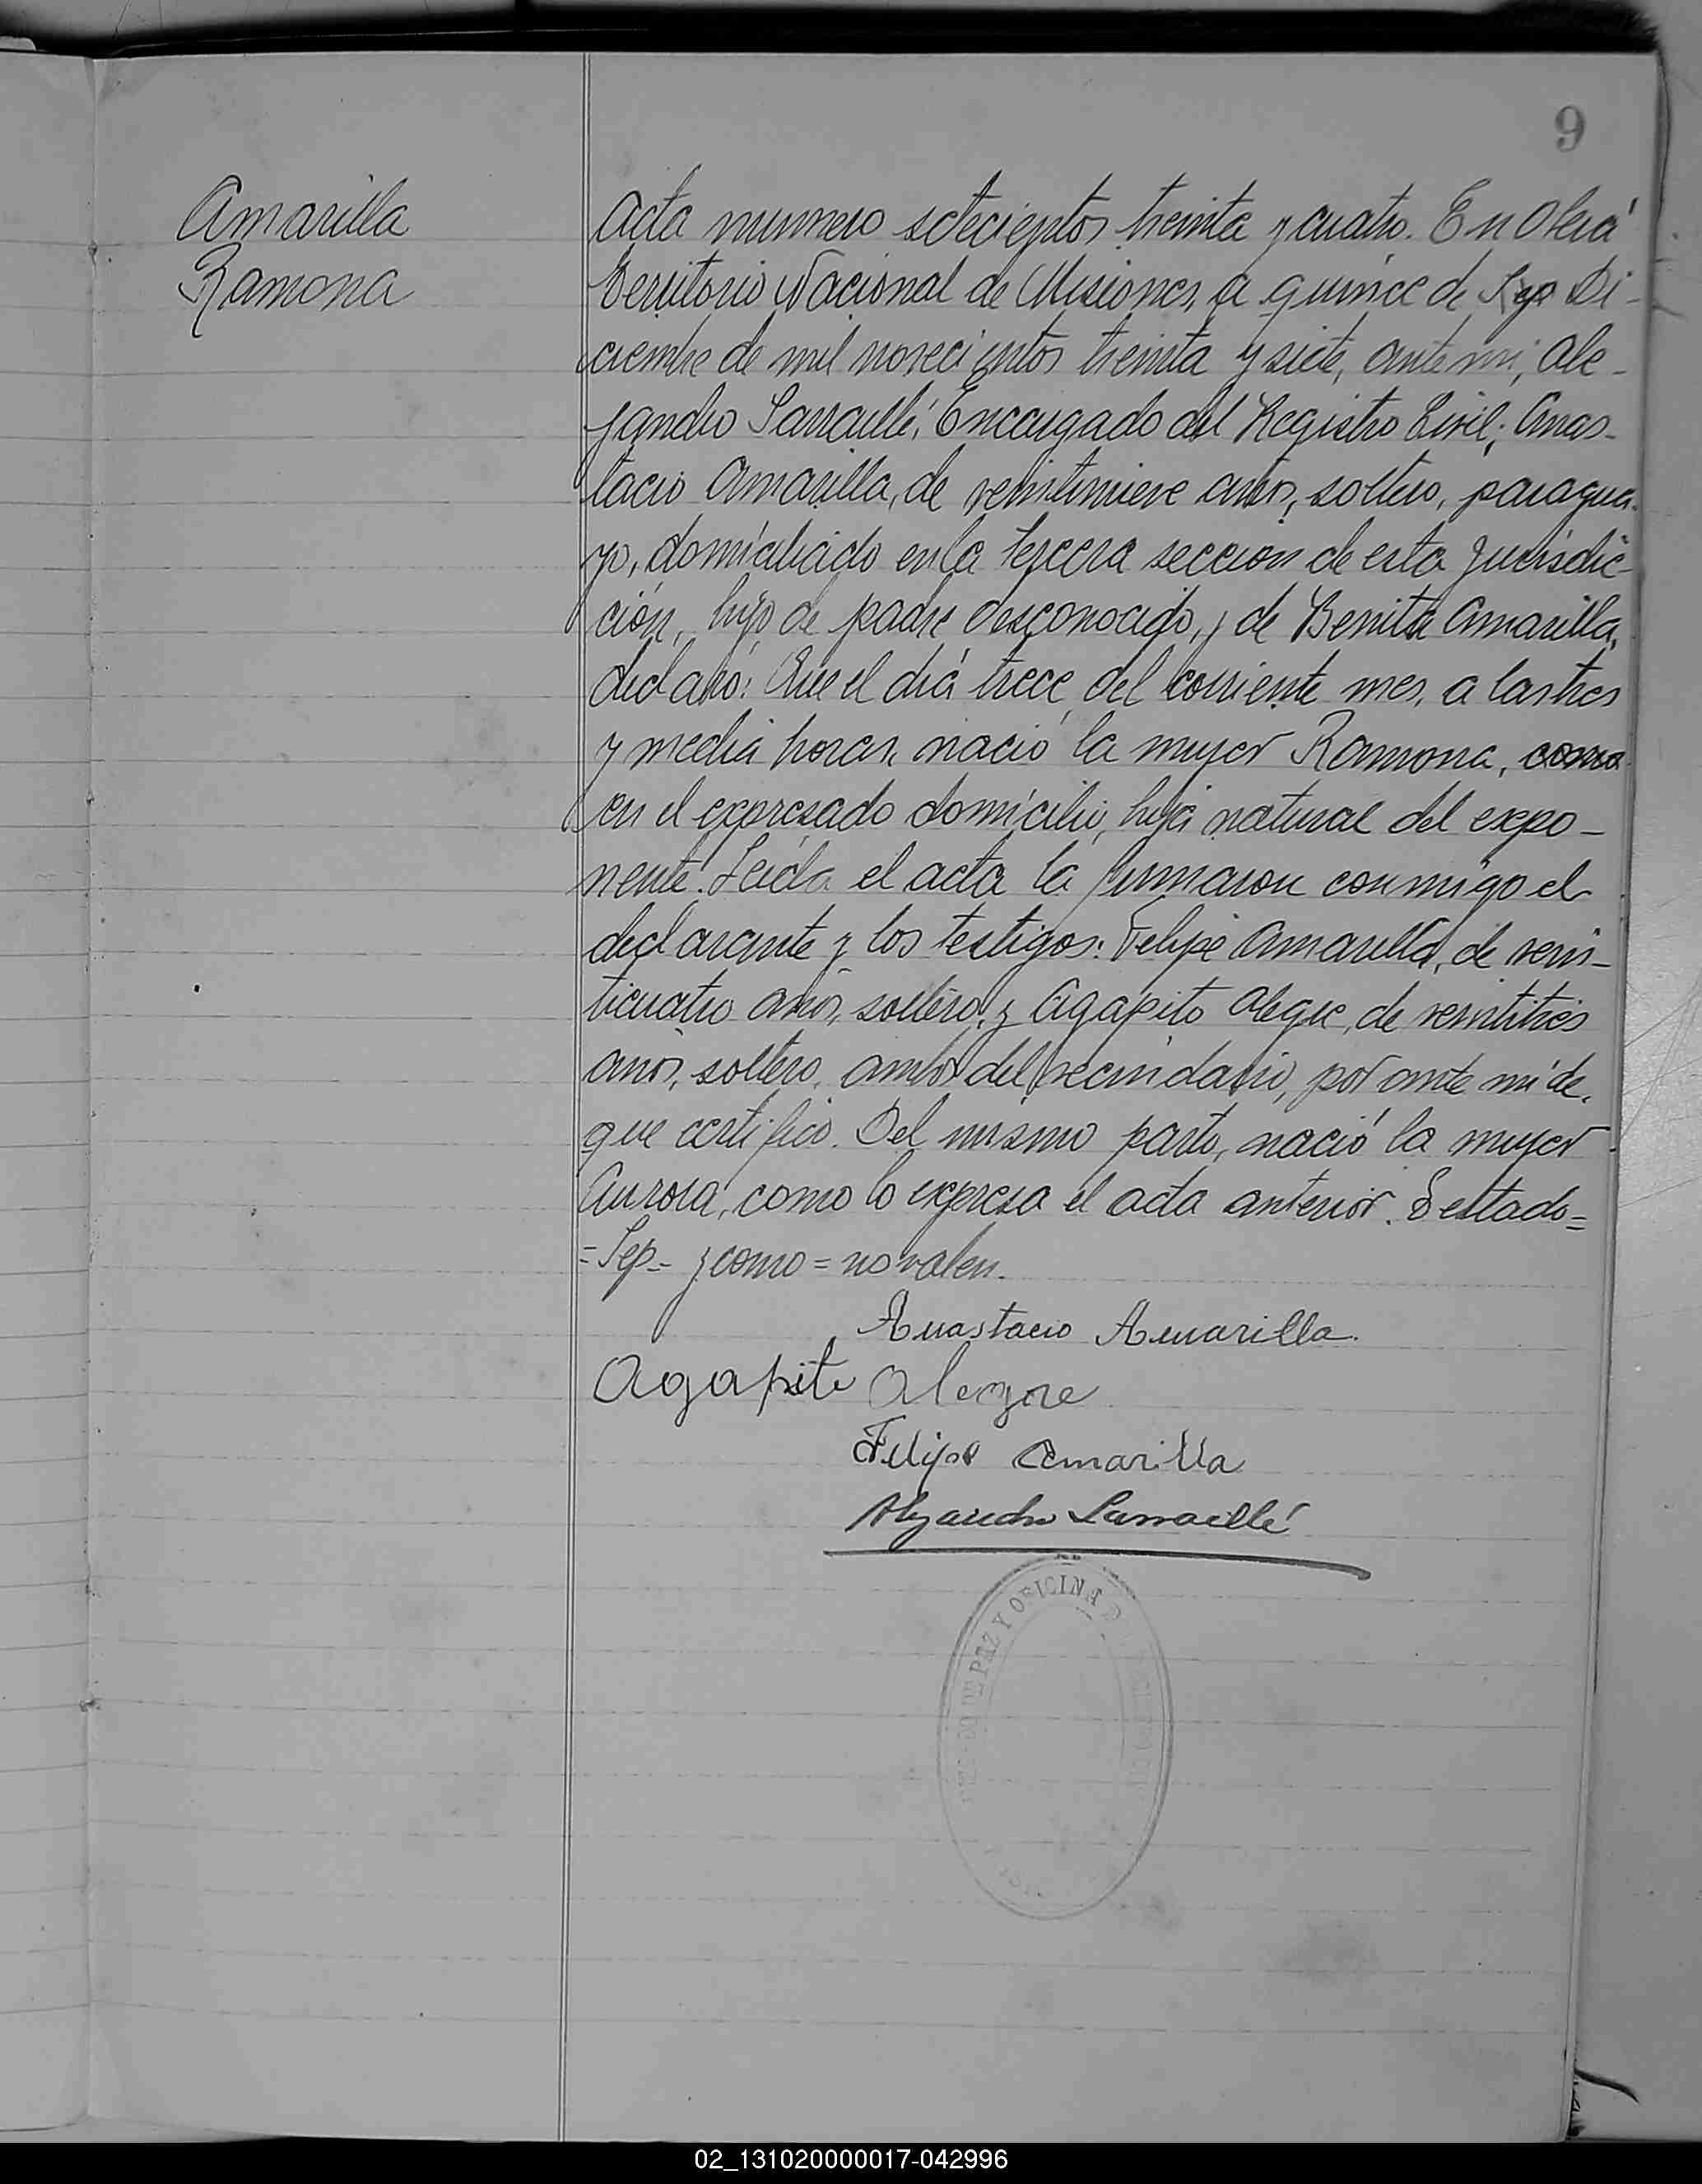 9
Amarilla
Ramona
Acta numero setecientos treinta y cuatro. En Oberá
Territorio Nacional de Misiones, a quince de Sep Di-
ciembre de mil novecientos treinta y siete, ante mi, Ale-
jandro Sarraillé, Encargado del Registro Civil; Anas-
tacio Amarilla, de veintinueve años, soltero, paragua-
yo, domiciliado en la tercera seccion de esta jurisdic-
ción, hijo de padre desconocido, y de Benita Amarilla,
declaró: Que el diá trece del corriente mes, a las tres
y media horas, nació la mujer Ramona, como
en el expresado domicilio, hija natural del expo-
nente. Leida el acta la firmaron conmigo el
declarante y los testigos: Felipe Amarilla, de vein-
ticuatro años, soltero, y Agapito Alegre, de veintitrés
años, soltero, ambos del vecindario, por ante mi de
que certifico. Del mismo parto, nació la mujer
Aurora, como lo expresa el acta anterior. Testado=
=Sep= y como = no valen.
Anastacio Amarilla.
Agapito Alegre
Felipe Amarilla
Alejandro Sarraillé
DE PAZ Y OFICINA
02_131020000017-042996